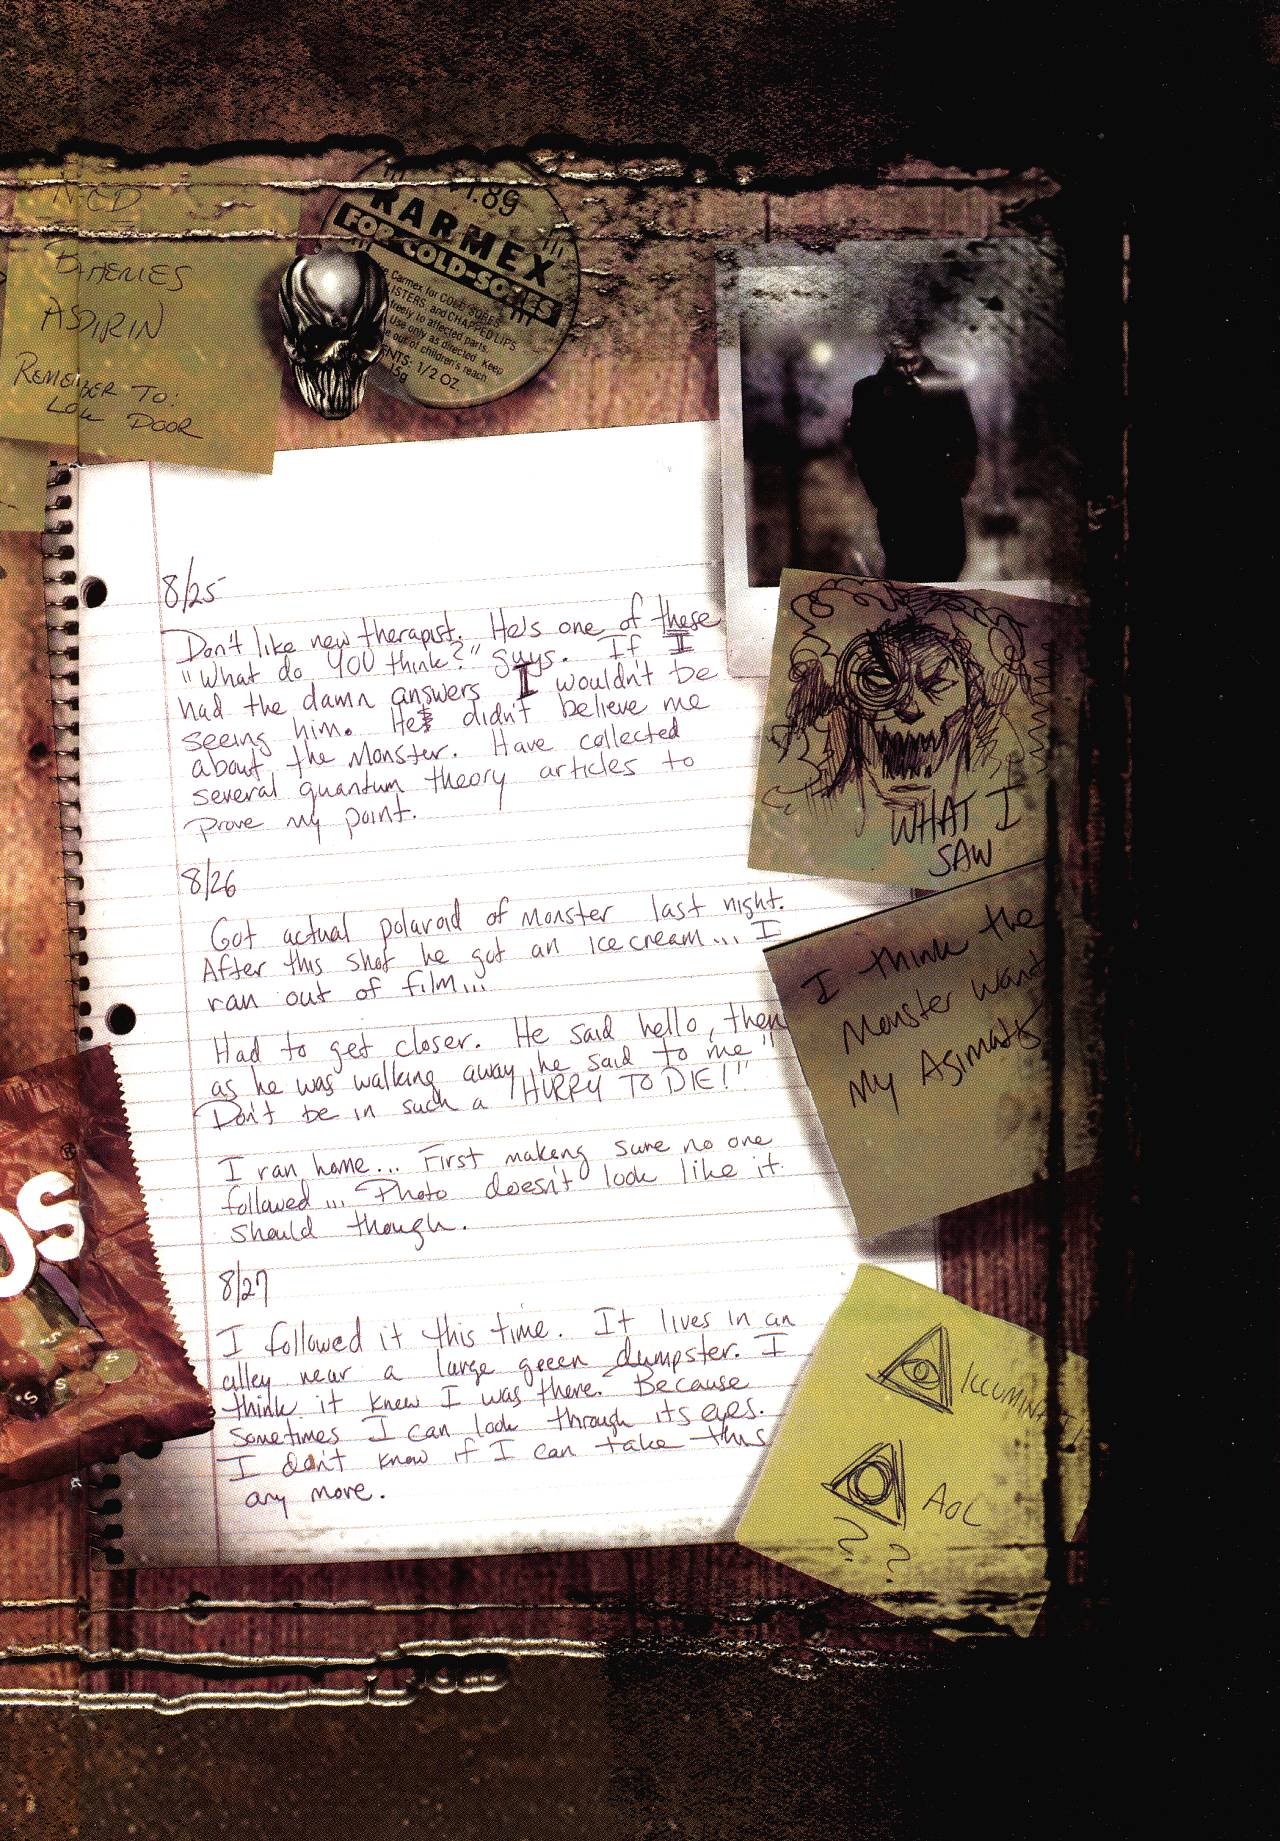 NEED
BATTERIES
ASPIRIN
REMEMBER TO:
LOCK DOOR
1.89
KARMEX
FOR COLD-SORES
Carmex for COLD SORES
LISTERS, and CHAPPED LIPS
freely to affected parts.
Use only as directed. Keep
out of children's reach
ENTS: 1/2 OZ.
15g
8/25
Don't like new therapist. He's one of these
"What do YOU think?" guys. If I
had the damn answers I wouldn't be
seeing him. He didn't believe me
about the Monster. Have collected
several quantum theory articles to
prove my point.
8/26
Got actual polaroid of monster last night.
After this shot he got an ice cream... I
ran out of film...
Had to get closer. He said hello, then
as he was walking away he said to me "
Don't be in such a HURRY TO DIE!"
I ran home... First making sure no one
followed... Photo doesn't look like it
should though.
8/27
I followed it this time. It lives in an
alley near a large green dumpster. I
think it knew I was there. Because
sometimes I can look through its eyes.
I don't know if I can take this
any more.
WHAT I
SAW
I think the
Monster want
my
ILLUMINATI
AOL
? ?
OS
®
S
S
S